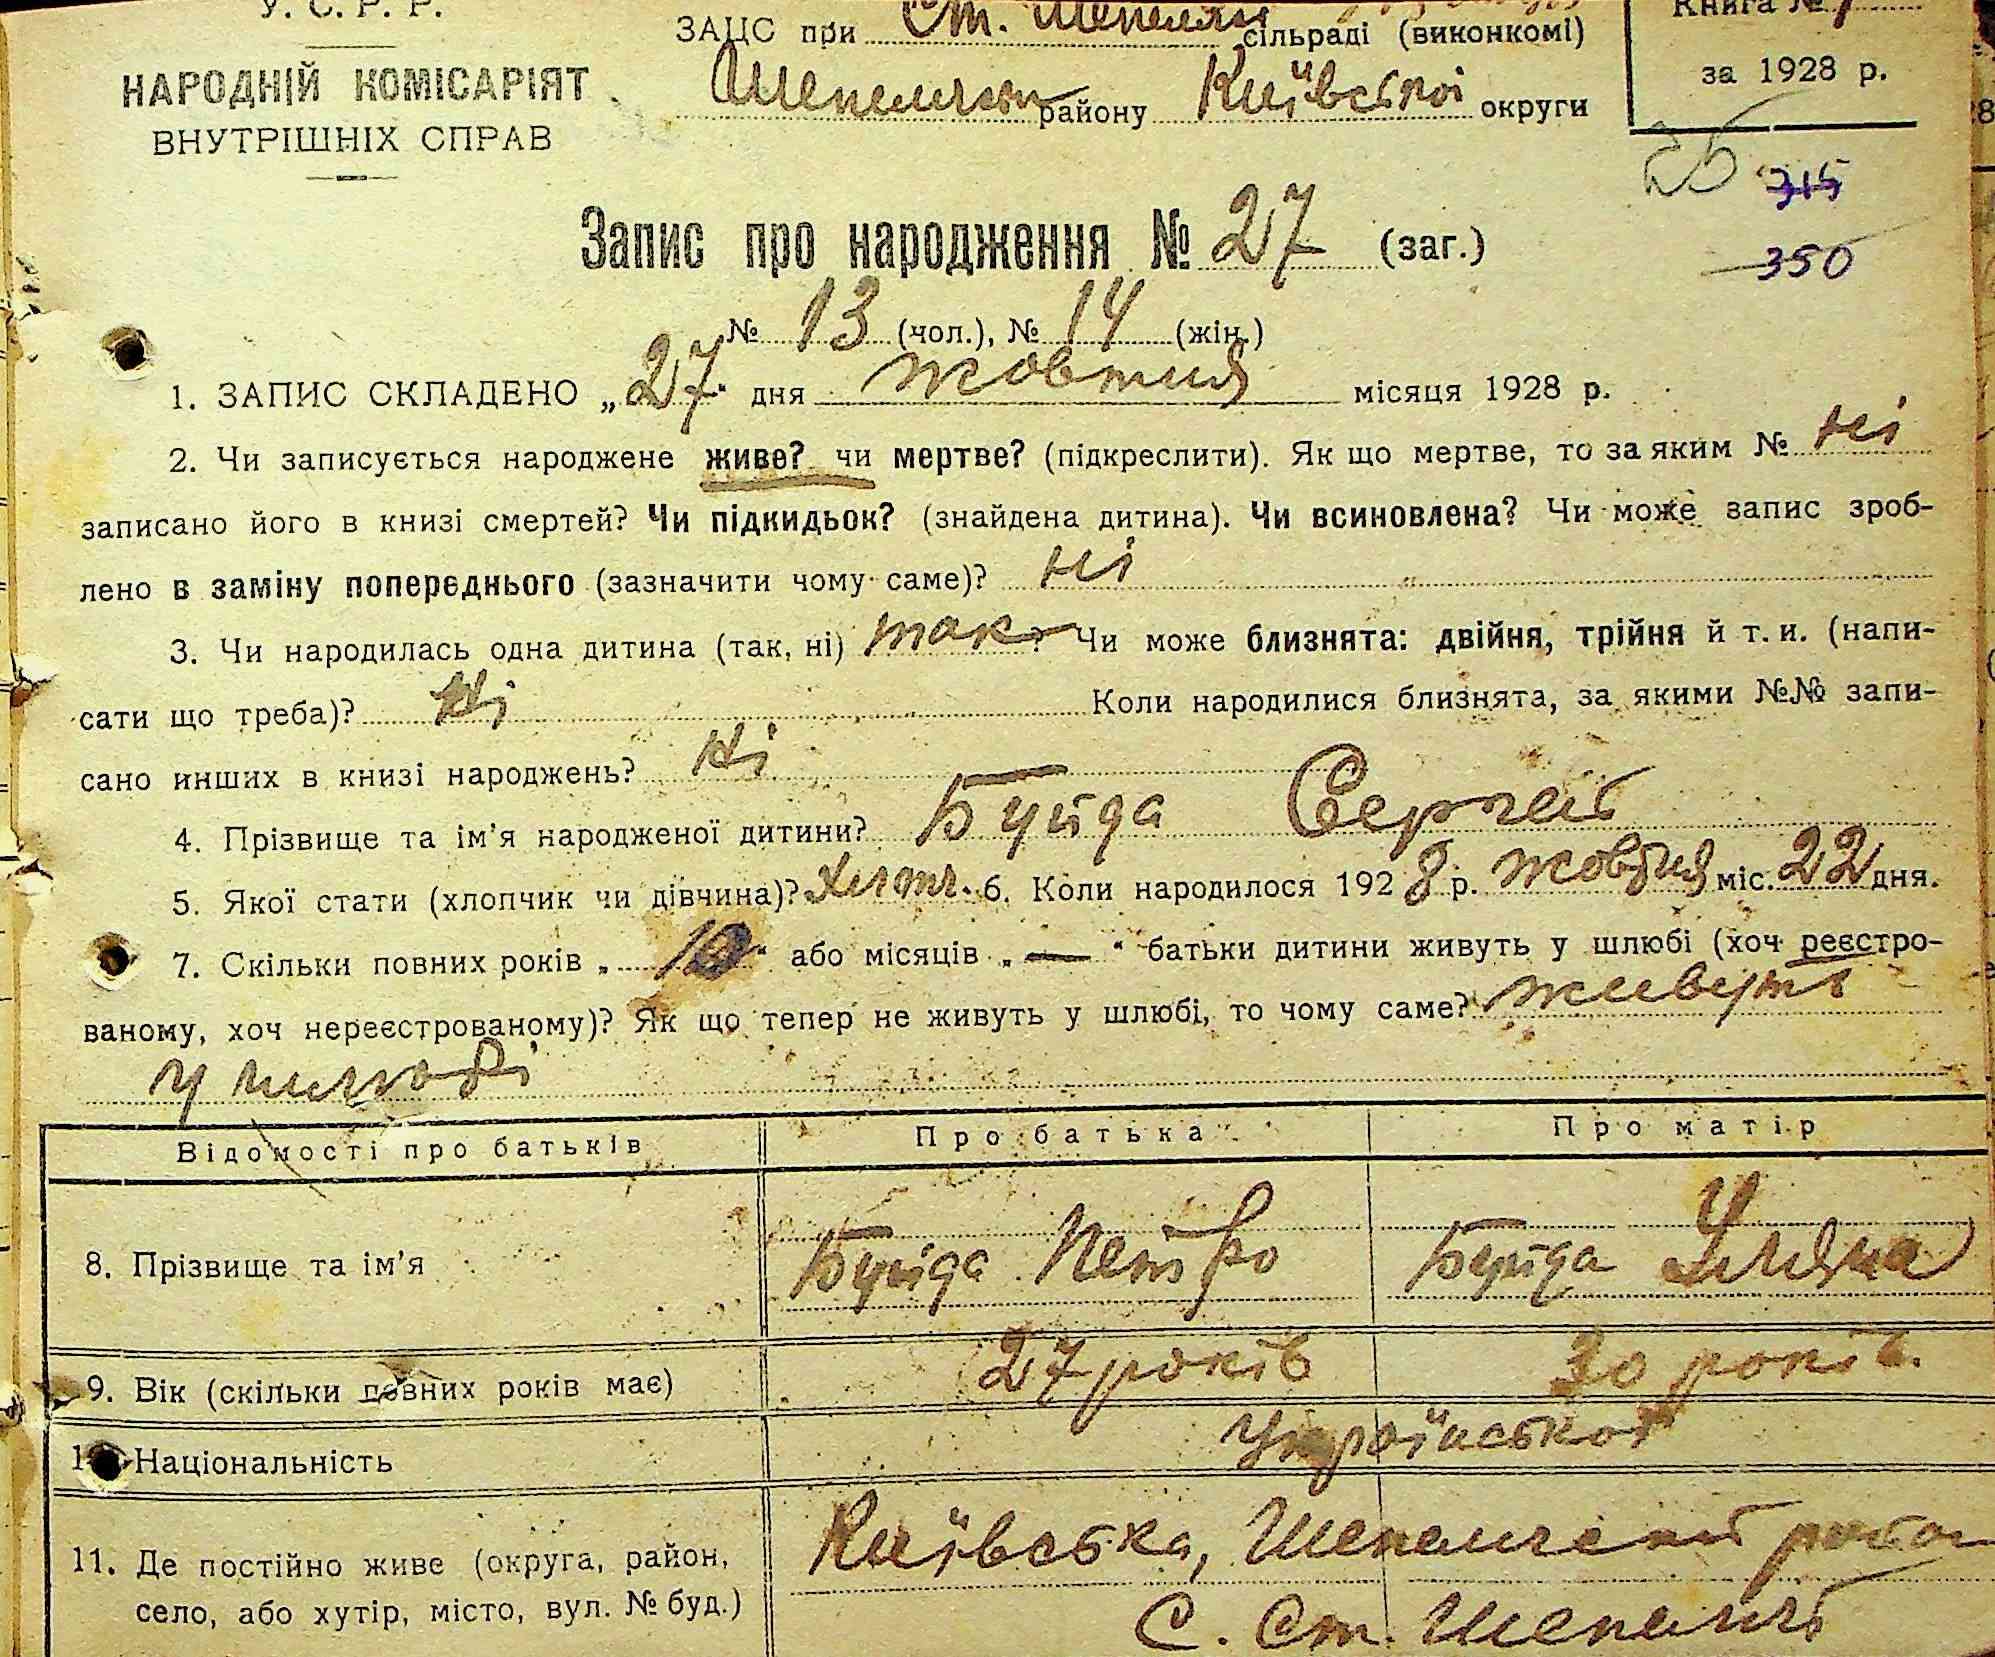 У. С. Р. Р.
НАРОДНІЙ КОМІСАРІЯТ
ВНУТРІШНІХ СПРАВ
ЗАЦС при Ст. Шепелич сільраді (виконкомі)
району Київської округи
Книга №
за 1928 р.
25
315
350
Запис про народження № 27 (заг.)
№ 13 (чол.), № 14 (жін.)
1. ЗАПИС СКЛАДЕНО „27" дня жовтня місяця 1928 р.
2. Чи записується народжене живе? чи мертве? (підкреслити). Як що мертве, то за яким № ні
записано його в книзі смертей? Чи підкидьок? (знайдена дитина). Чи всиновлена? Чи може запис зроб-
лено в заміну попереднього (зазначити чому саме)? ні
3. Чи народилась одна дитина (так, ні) так? Чи може близнята: двійня, трійня й т. и. (напи-
сати що треба)? Ні Коли народилися близнята, за якими №№ запи-
сано инших в книзі народжень? Ні
4. Прізвище та ім'я народженої дитини? Буйда Сергей
5. Якої стати (хлопчик чи дівчина)? 6. Коли народилося 1928 р. жовтня міс. 22 дня.
7. Скільки повних років „ " або місяців „—" батьки дитини живуть у шлюбі (хоч реєстро-
ваному, хоч нереєстрованому)? Як що тепер не живуть у шлюбі, то чому саме? живуть
у шлюбі
Відомості про батьків
Про батька
Про матір
8. Прізвище та ім'я
Буйда Петро
Буйда Уляна
9. Вік (скільки повних років має)
27 років
30 років.
Національність
Української
11. Де постійно живе (округа, район,
село, або хутір, місто, вул. № буд.)
Київська, Шепелическ район
С. Ст. Шепеличі